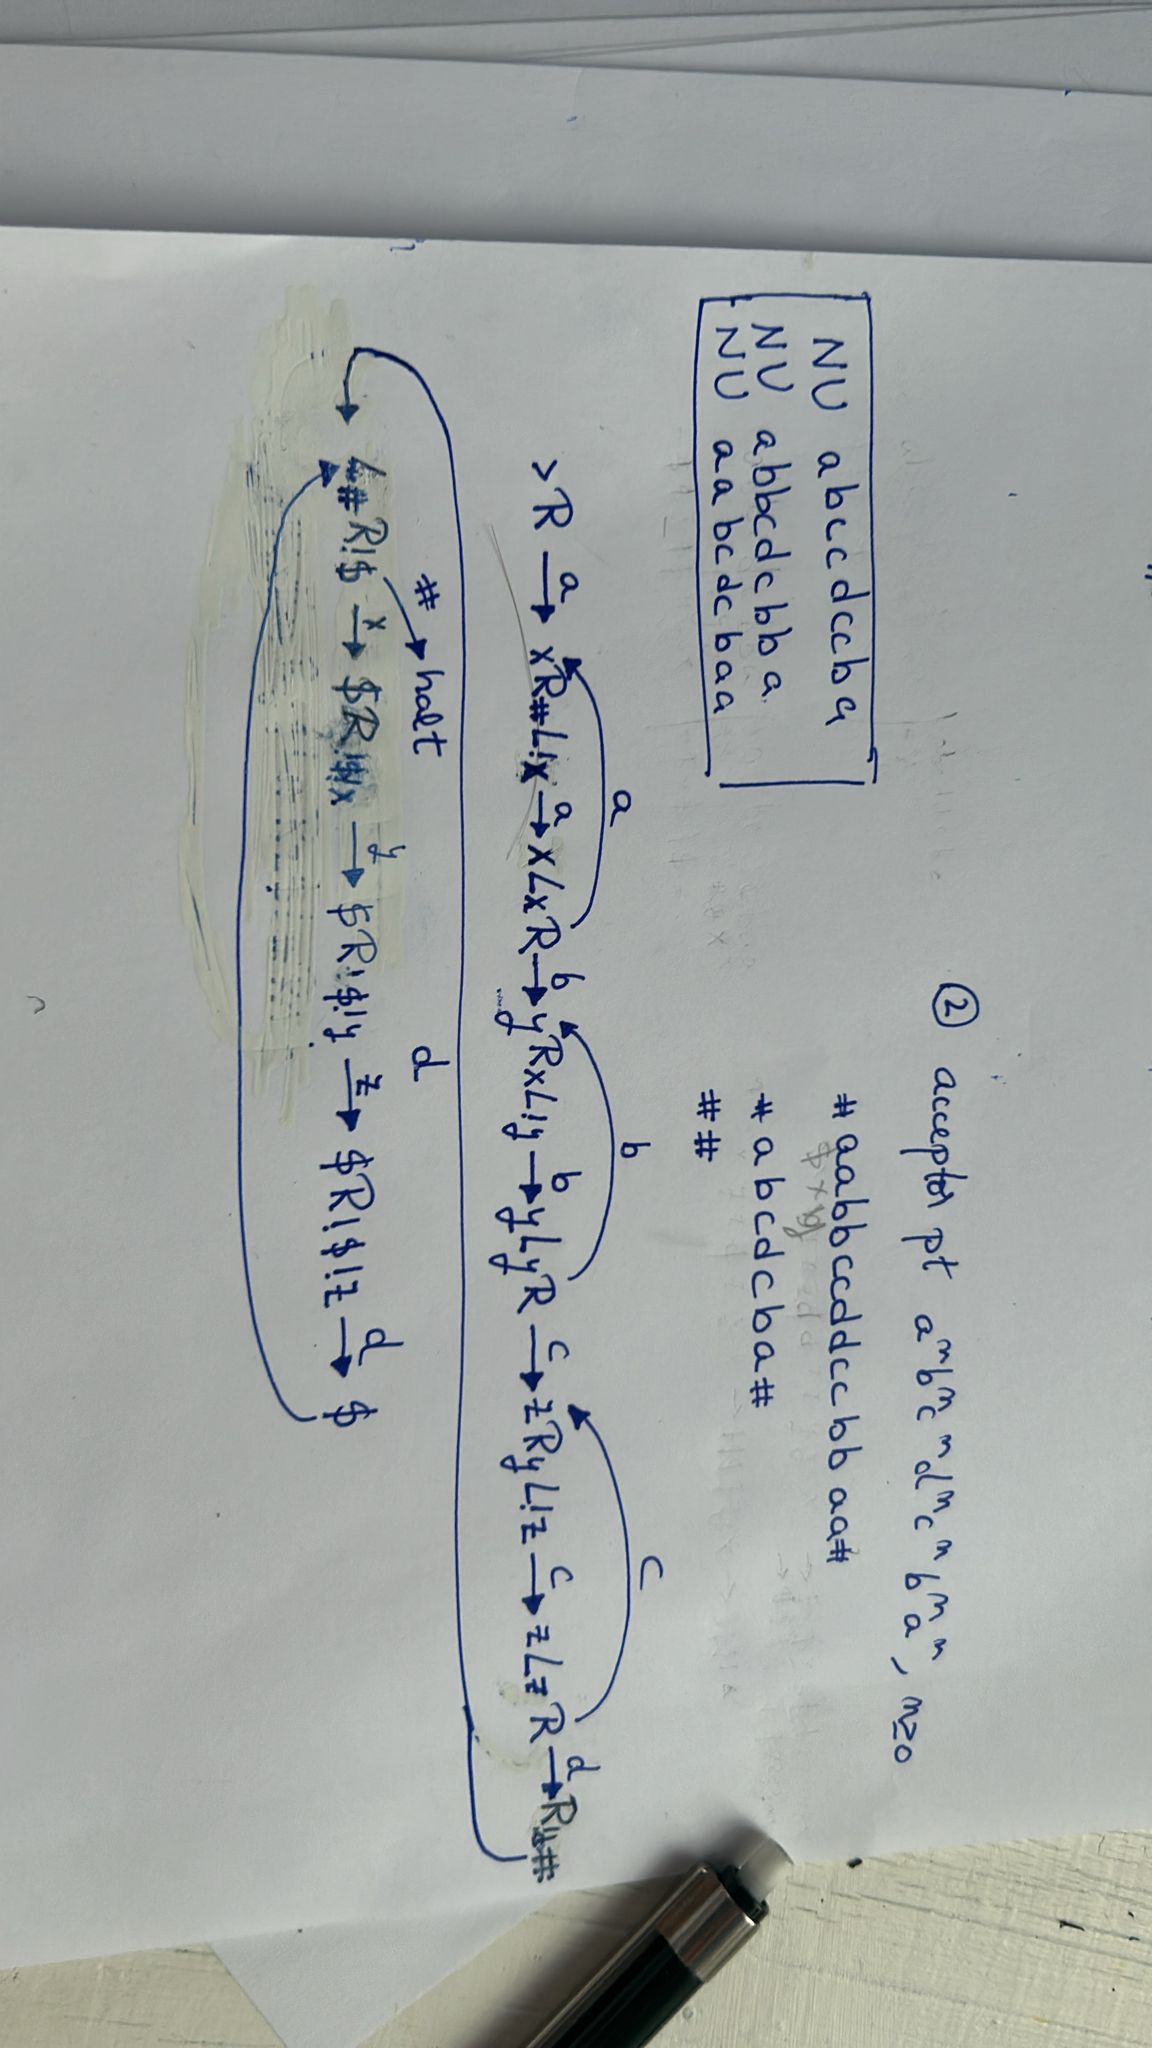 ② acceptor pt aⁿbⁿcⁿdⁿcⁿbⁿaⁿ, n≥0
#aabbccddccbbaa#
$xy
#abcdcba#
##
NU abccdccba
NU abbcdcbba
NU aabcdcbaa
a b c
>R a→ xR#L!x a→ xLxR b→ yRxL!y b→ yLyR c→ zRyL!z c→ zLzR d→ R!#
d
# halt
L#R!$ x→ $R!$!x y→ $R!$!y z→ $R!$!z d→ $